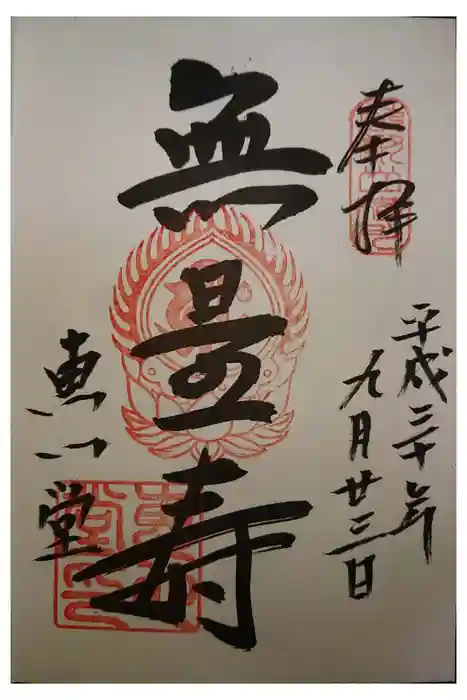 奉拝
平成三十年
九月廿三日
無量寿
恵心堂